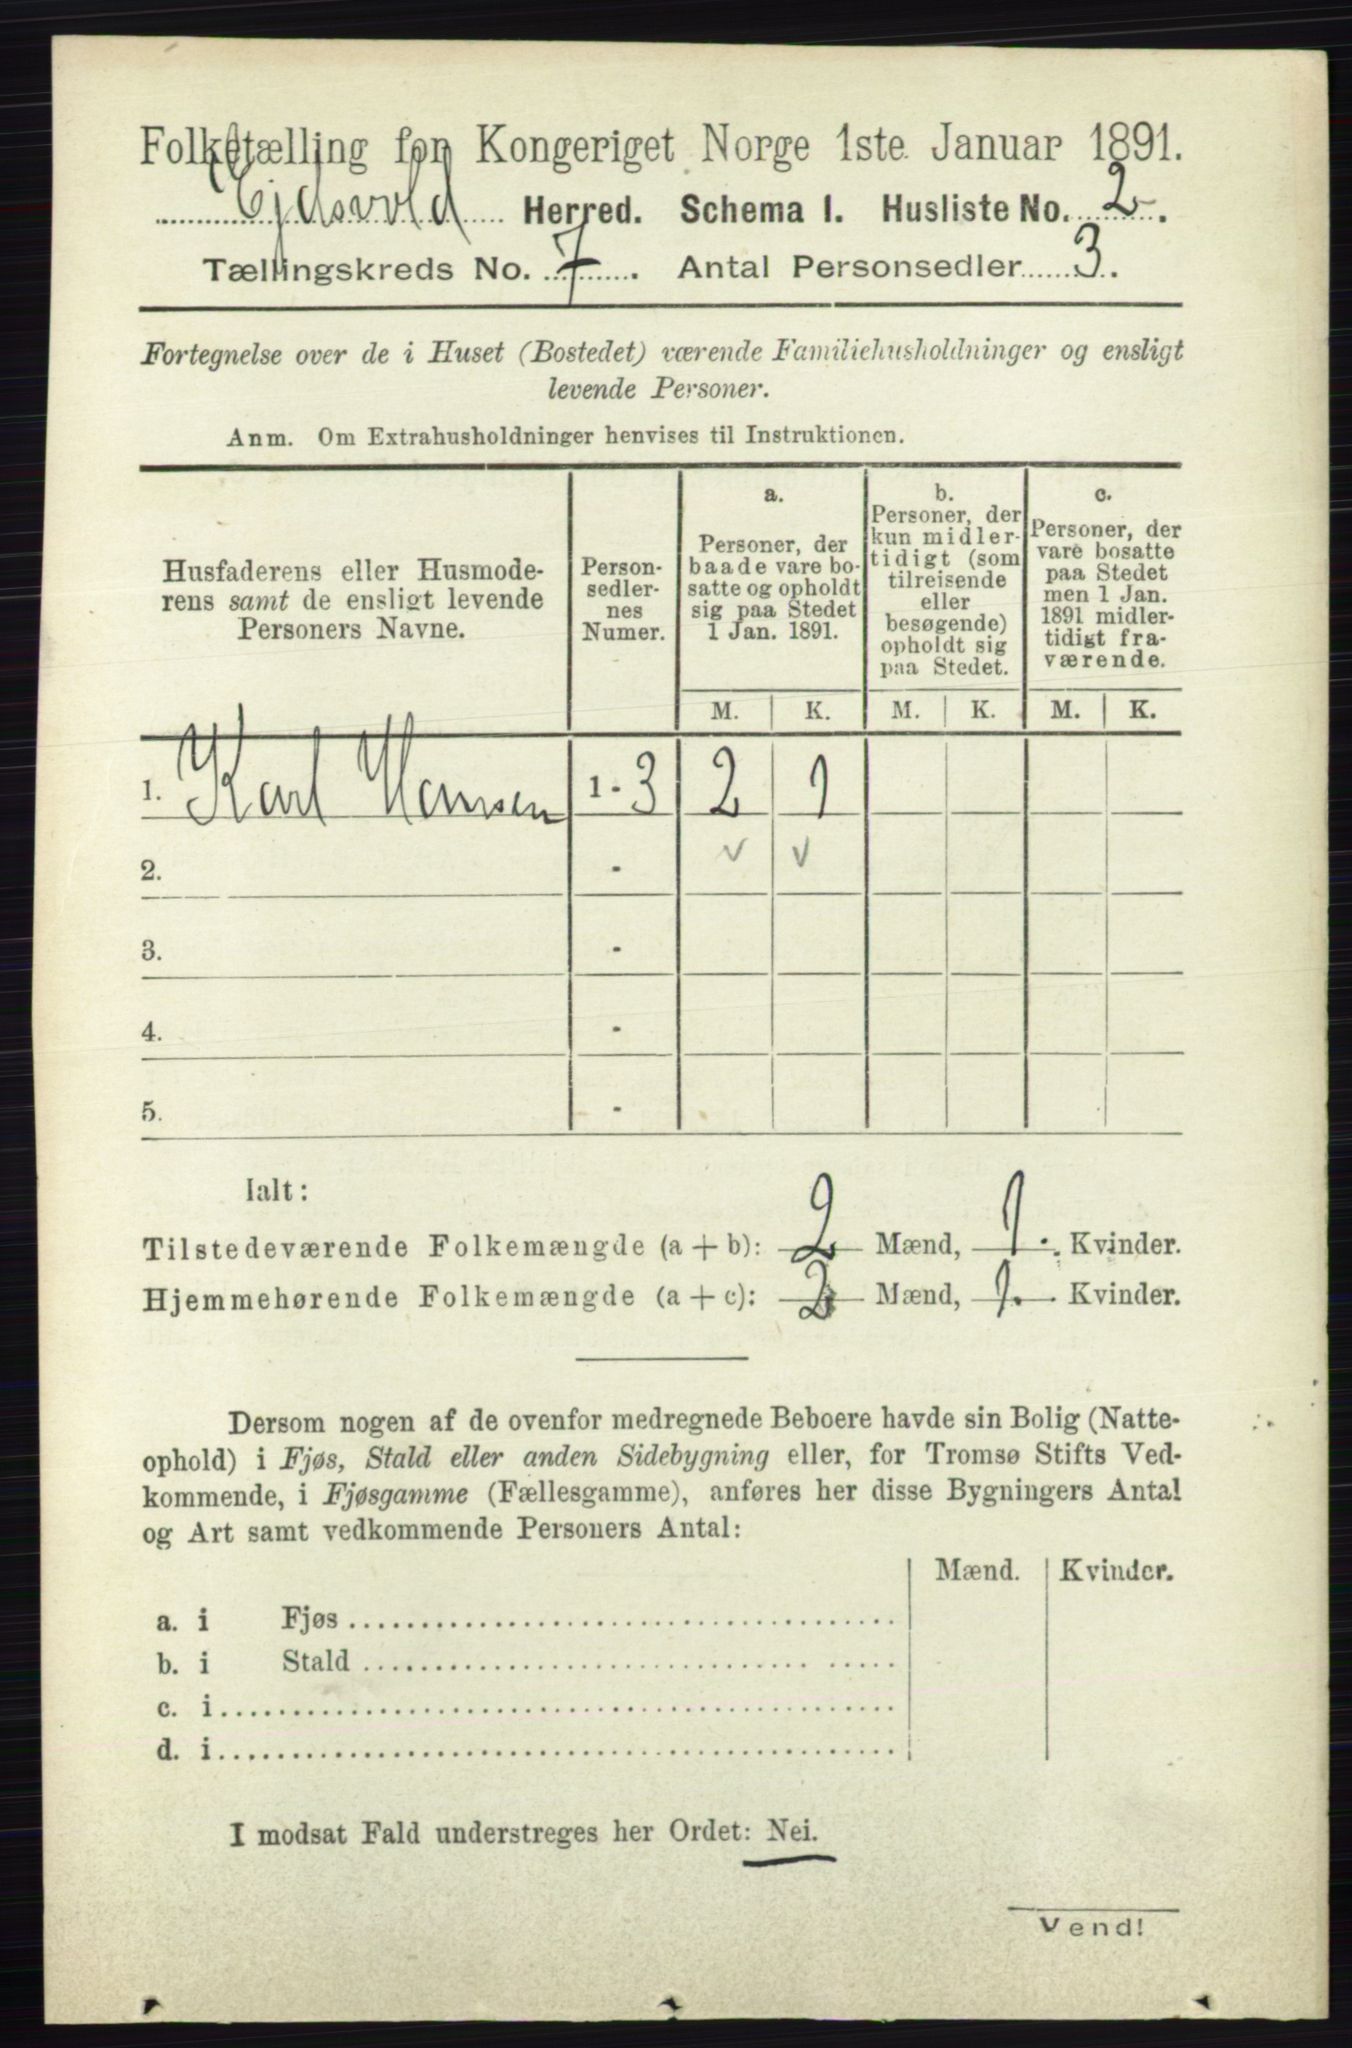 Folketælling for Kongeriget Norge 1ste Januar 1891.
Ejdsvold Herred. Schema I. Husliste No. 2.
Tællingskreds No. 7. Antal Personsedler 3.
Fortegnelse over de i Huset (Bostedet) værende Familiehusholdninger og ensligt
levende Personer.
Anm. Om Extrahusholdninger henvises til Instruktionen.
Husfaderens eller Husmode-
rens samt de ensligt levende
Personers Navne.
Person-
sedler-
nes
Numer.
a.
Personer, der
baade vare bo-
satte og opholdt
sig paa Stedet
1 Jan. 1891.
b.
Personer, der
kun midler-
tidigt (som
tilreisende
eller
besøgende)
opholdt sig
paa Stedet.
c.
Personer, der
vare bosatte
paa Stedet
men 1 Jan.
1891 midler-
tidigt fra-
værende.
M. K. M. K. M. K.
1. Karl Hansen 1-3 2 1
2. - v v
3. -
4. -
5. -
Ialt:
Tilstedeværende Folkemængde (a + b): 2 Mænd, 1. Kvinder.
Hjemmehørende Folkemængde (a + c): 2 Mænd, 1. Kvinder.
Dersom nogen af de ovenfor medregnede Beboere havde sin Bolig (Natte-
ophold) i Fjøs, Stald eller anden Sidebygning eller, for Tromsø Stifts Ved-
kommende, i Fjøsgamme (Fællesgamme), anføres her disse Bygningers Antal
og Art samt vedkommende Personers Antal:
Mænd. Kvinder.
a. i Fjøs
b. i Stald
c. i
d. i
I modsat Fald understreges her Ordet: Nei.
Vend!